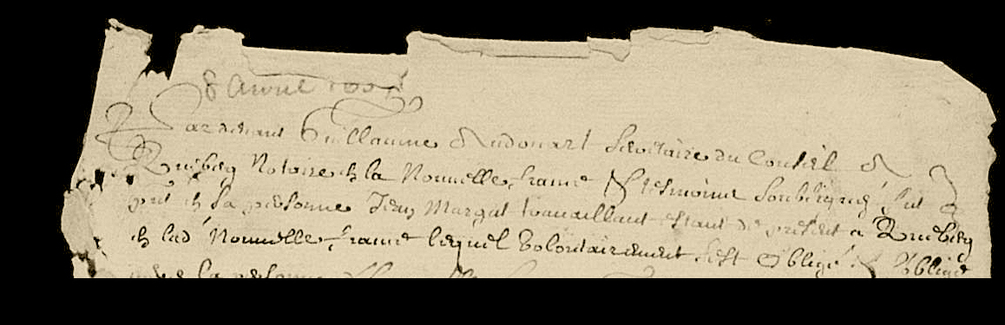 8 Avril
Pardevant Guillaume Audouart Secretaire du Conseil
Quebecq Notoire en la Nouvelle france & tesmoins soubsignés, fut
pnt en sa personne Jean Margat travaillant estant de present a Quebecq
en lad' Nouvelle france lequel volontairement s'est obligé & oblige
la personne